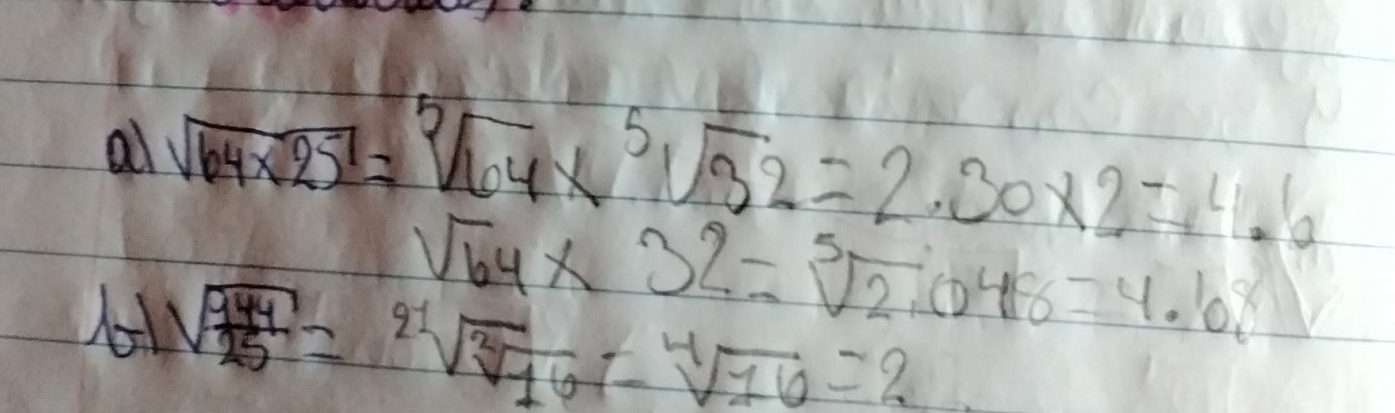 a) √64×25 = ⁵√64 × ⁵√32 = 2.30×2 = 4.6
√64 × 32 = ⁵√2,048 = 4.68
b) √144/25 = ²√²√16 = ⁴√16 = 2